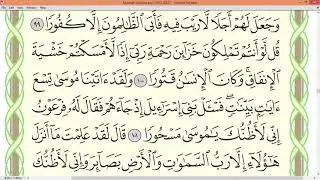 وَجَعَلَ لَهُمْ أَجَلًا لَّا رَيْبَ فِيهِ فَأَبَى ٱلظَّٰلِمُونَ إِلَّا كُفُورًا ٩٩
قُل لَّوْ أَنتُمْ تَمْلِكُونَ خَزَآئِنَ رَحْمَةِ رَبِّىٓ إِذًا لَّأَمْسَكْتُمْ خَشْيَةَ
ٱلْإِنفَاقِ وَكَانَ ٱلْإِنسَٰنُ قَتُورًا ١٠٠ وَلَقَدْ ءَاتَيْنَا مُوسَىٰ تِسْعَ
ءَايَٰتٍۭ بَيِّنَٰتٍ فَسْـَٔلْ بَنِىٓ إِسْرَٰٓءِيلَ إِذْ جَآءَهُمْ فَقَالَ لَهُۥ فِرْعَوْنُ
إِنِّى لَأَظُنُّكَ يَٰمُوسَىٰ مَسْحُورًا ١٠١ قَالَ لَقَدْ عَلِمْتَ مَآ أَنزَلَ
هَٰٓؤُلَآءِ إِلَّا رَبُّ ٱلسَّمَٰوَٰتِ وَٱلْأَرْضِ بَصَآئِرَ وَإِنِّى لَأَظُنُّكَ